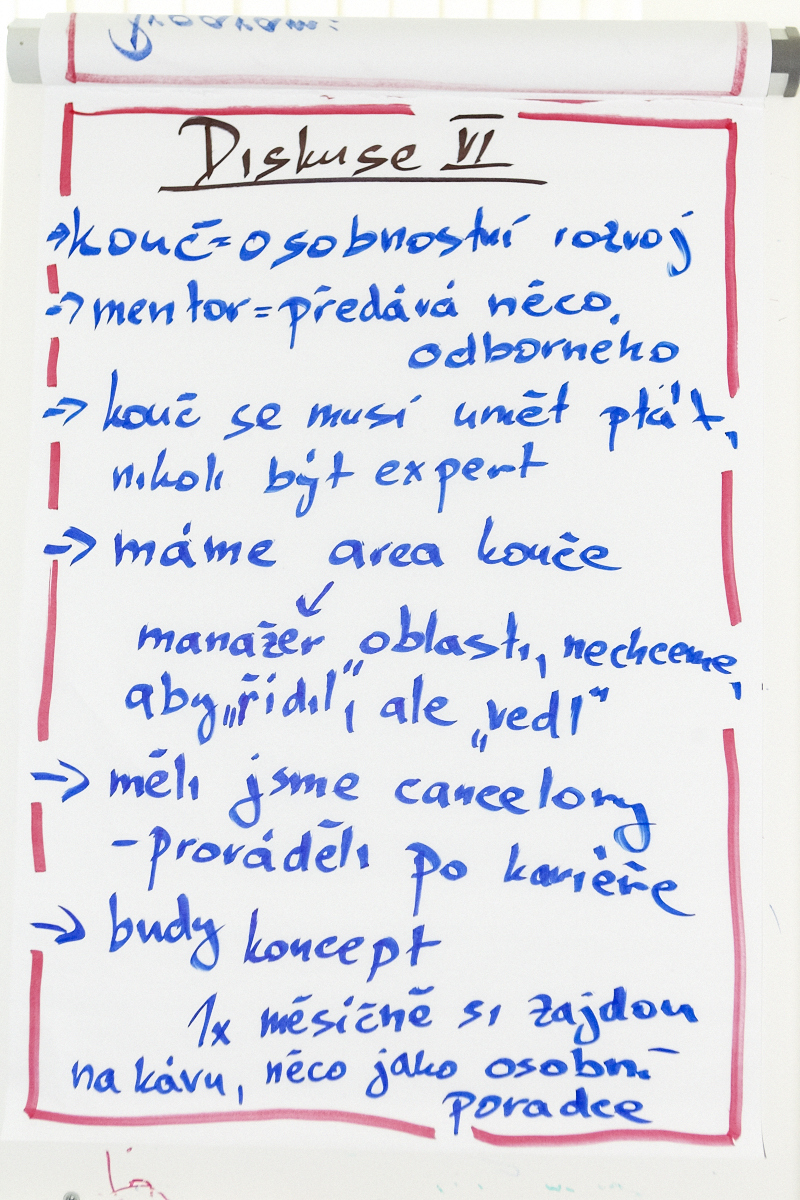 Program:
Diskuse VI
→ kouč = osobnostní rozvoj
→ mentor = předává něco
odborného
→ kouč se musí umět ptá't,
nikoli být expert
→ máme area kouče
↙
manažer oblasti, nechceme,
aby „řídil", ale „vedl"
→ měli jsme cancelory
- prováděli po kariéře
→ budy koncept
1x měsíčně si zajdou
na kávu, něco jako osobní
poradce